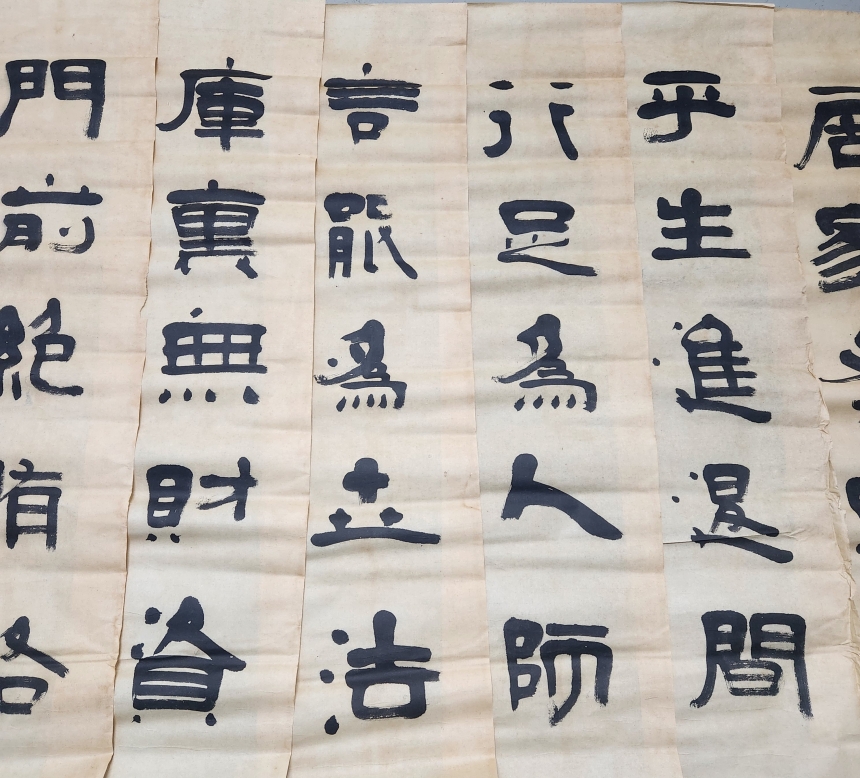 家
乎生進退間
行足為人師
言能為世法
庫裏無財資
門前絕賄賂